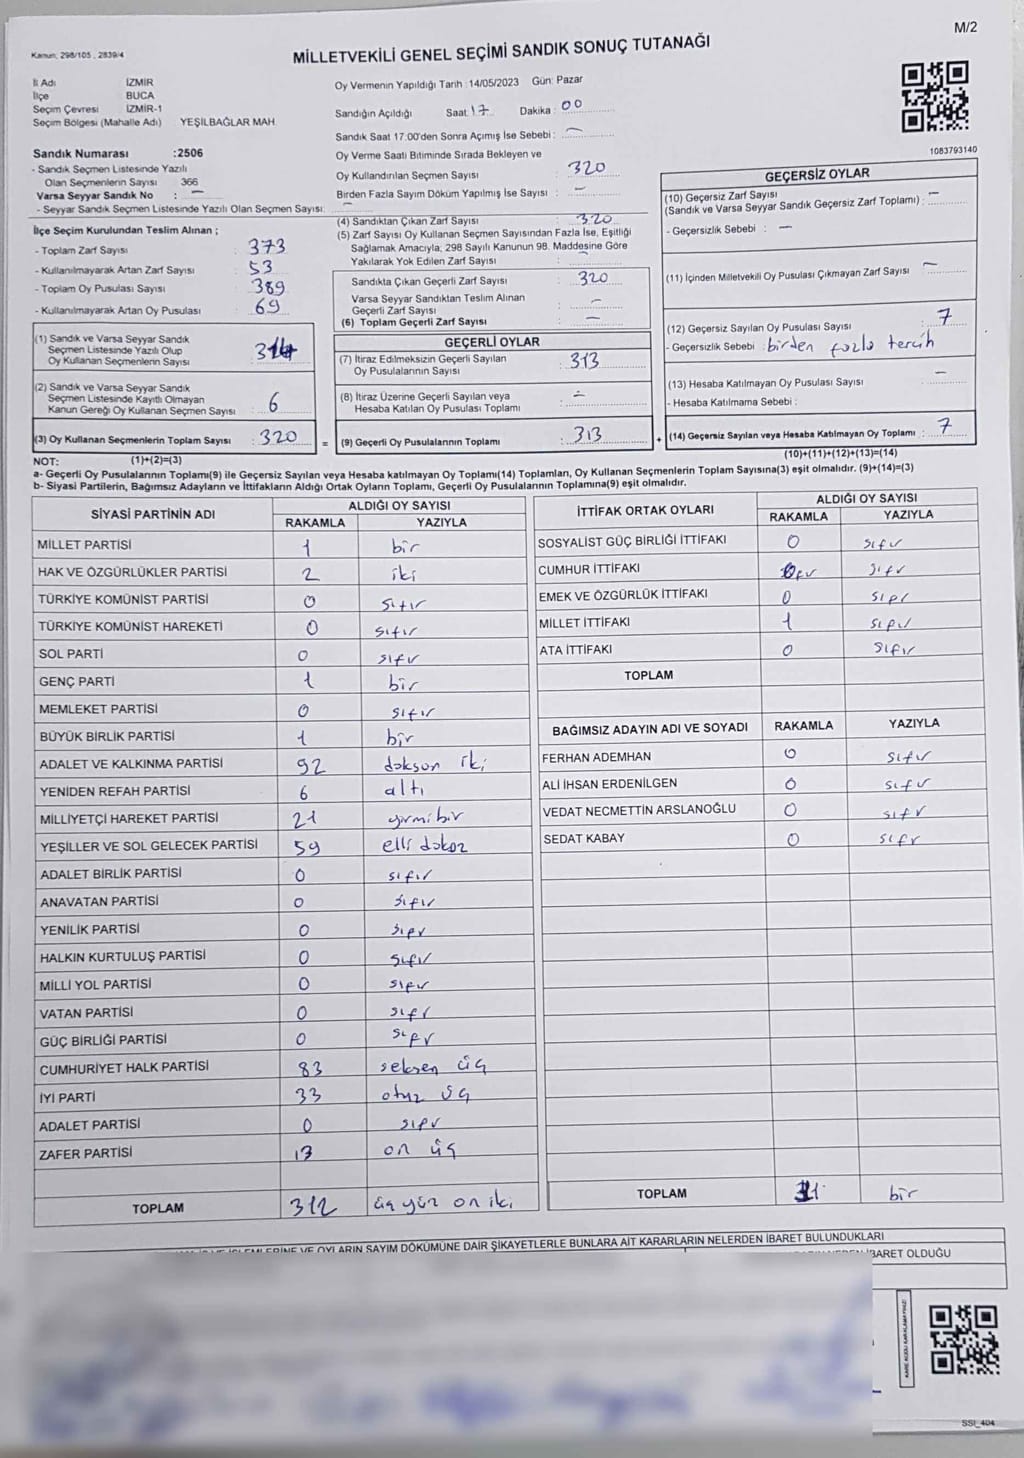 M/2
Kanun; 298/105 , 2839/4
MİLLETVEKİLİ GENEL SEÇİMİ SANDIK SONUÇ TUTANAĞI
İl Adı İZMİR
İlçe BUCA
Seçim Çevresi İZMİR-1
Seçim Bölgesi (Mahalle Adı) YEŞİLBAĞLAR MAH.
Oy Vermenin Yapıldığı Tarih :14/05/2023 Gün: Pazar
Sandığın Açıldığı Saat: 17 Dakika : 00
Sandık Saat 17:00'den Sonra Açımış İse Sebebi : —
1083793140
Sandık Numarası :2506
- Sandık Seçmen Listesinde Yazılı
Olan Seçmenlerin Sayısı 366
Varsa Seyyar Sandık No : —
- Seyyar Sandık Seçmen Listesinde Yazılı Olan Seçmen Sayısı: —
İlçe Seçim Kurulundan Teslim Alınan ;
- Toplam Zarf Sayısı : 373
- Kullanılmayarak Artan Zarf Sayısı : 53
- Toplam Oy Pusulası Sayısı : 389
- Kullanılmayarak Artan Oy Pusulası : 69
(1) Sandık ve Varsa Seyyar Sandık
Seçmen Listesinde Yazılı Olup
Oy Kullanan Seçmenlerin Sayısı : 314
(2) Sandık ve Varsa Seyyar Sandık
Seçmen Listesinde Kayıtlı Olmayan
Kanun Gereği Oy Kullanan Seçmen Sayısı : 6
(3) Oy Kullanan Seçmenlerin Toplam Sayısı : 320
Oy Verme Saati Bitiminde Sırada Bekleyen ve
Oy Kullandırılan Seçmen Sayısı : 320
Birden Fazla Sayım Döküm Yapılmış İse Sayısı : —
(4) Sandıktan Çıkan Zarf Sayısı : 320
(5) Zarf Sayısı Oy Kullanan Seçmen Sayısından Fazla İse, Eşitliği
Sağlamak Amacıyla, 298 Sayılı Kanunun 98. Maddesine Göre
Yakılarak Yok Edilen Zarf Sayısı : —
Sandıkta Çıkan Geçerli Zarf Sayısı : 320
Varsa Seyyar Sandıktan Teslim Alınan
Geçerli Zarf Sayısı : —
(6) Toplam Geçerli Zarf Sayısı : —
GEÇERLİ OYLAR
(7) İtiraz Edilmeksizin Geçerli Sayılan
Oy Pusulalarının Sayısı : 313
(8) İtiraz Üzerine Geçerli Sayılan veya
Hesaba Katılan Oy Pusulası Toplamı : —
= (9) Geçerli Oy Pusulalarının Toplamı : 313
GEÇERSİZ OYLAR
(10) Geçersiz Zarf Sayısı
(Sandık ve Varsa Seyyar Sandık Geçersiz Zarf Toplamı) : —
- Geçersizlik Sebebi : —
(11) İçinden Milletvekili Oy Pusulası Çıkmayan Zarf Sayısı —
(12) Geçersiz Sayılan Oy Pusulası Sayısı : 7
- Geçersizlik Sebebi : birden fazla tercih
(13) Hesaba Katılmayan Oy Pusulası Sayısı : —
- Hesaba Katılmama Sebebi :
+ (14) Geçersiz Sayılan veya Hesaba Katılmayan Oy Toplamı : 7
NOT: (1)+(2)=(3)
(10)+(11)+(12)+(13)=(14)
a- Geçerli Oy Pusulalarının Toplamı(9) ile Geçersiz Sayılan veya Hesaba katılmayan Oy Toplamı(14) Toplamları, Oy Kullanan Seçmenlerin Toplam Sayısına(3) eşit olmalıdır. (9)+(14)=(3)
b- Siyasi Partilerin, Bağımsız Adayların ve İttifakların Aldığı Ortak Oyların Toplamı, Geçerli Oy Pusulalarının Toplamına(9) eşit olmalıdır.
SİYASİ PARTİNİN ADI ALDIĞI OY SAYISI
RAKAMLA YAZIYLA
MİLLET PARTİSİ 1 bir
HAK VE ÖZGÜRLÜKLER PARTİSİ 2 iki
TÜRKİYE KOMÜNİST PARTİSİ 0 sıfır
TÜRKİYE KOMÜNİST HAREKETİ 0 sıfır
SOL PARTİ 0 sıfır
GENÇ PARTİ 1 bir
MEMLEKET PARTİSİ 0 sıfır
BÜYÜK BİRLİK PARTİSİ 1 bir
ADALET VE KALKINMA PARTİSİ 92 doksan iki
YENİDEN REFAH PARTİSİ 6 altı
MİLLİYETÇİ HAREKET PARTİSİ 21 yirmi bir
YEŞİLLER VE SOL GELECEK PARTİSİ 59 elli dokuz
ADALET BİRLİK PARTİSİ 0 sıfır
ANAVATAN PARTİSİ 0 sıfır
YENİLİK PARTİSİ 0 sıfır
HALKIN KURTULUŞ PARTİSİ 0 sıfır
MİLLİ YOL PARTİSİ 0 sıfır
VATAN PARTİSİ 0 sıfır
GÜÇ BİRLİĞİ PARTİSİ 0 sıfır
CUMHURİYET HALK PARTİSİ 83 seksen üç
İYİ PARTİ 33 otuz üç
ADALET PARTİSİ 0 sıfır
ZAFER PARTİSİ 13 on üç
TOPLAM 312 üç yüz on iki
İTTİFAK ORTAK OYLARI ALDIĞI OY SAYISI
RAKAMLA YAZIYLA
SOSYALİST GÜÇ BİRLİĞİ İTTİFAKI 0 sıfır
CUMHUR İTTİFAKI sıfır
EMEK VE ÖZGÜRLÜK İTTİFAKI 0 sıfır
MİLLET İTTİFAKI 1 sıfır
ATA İTTİFAKI 0 sıfır
TOPLAM
BAĞIMSIZ ADAYIN ADI VE SOYADI RAKAMLA YAZIYLA
FERHAN ADEMHAN 0 sıfır
ALİ İHSAN ERDENİLGEN 0 sıfır
VEDAT NECMETTİN ARSLANOĞLU 0 sıfır
SEDAT KABAY 0 sıfır
TOPLAM bir
VE OYLARIN SAYIM DÖKÜMÜNE DAİR ŞİKAYETLERLE BUNLARA AİT KARARLARIN NELERDEN İBARET BULUNDUKLARI
İBARET OLDUĞU
SSİ_404